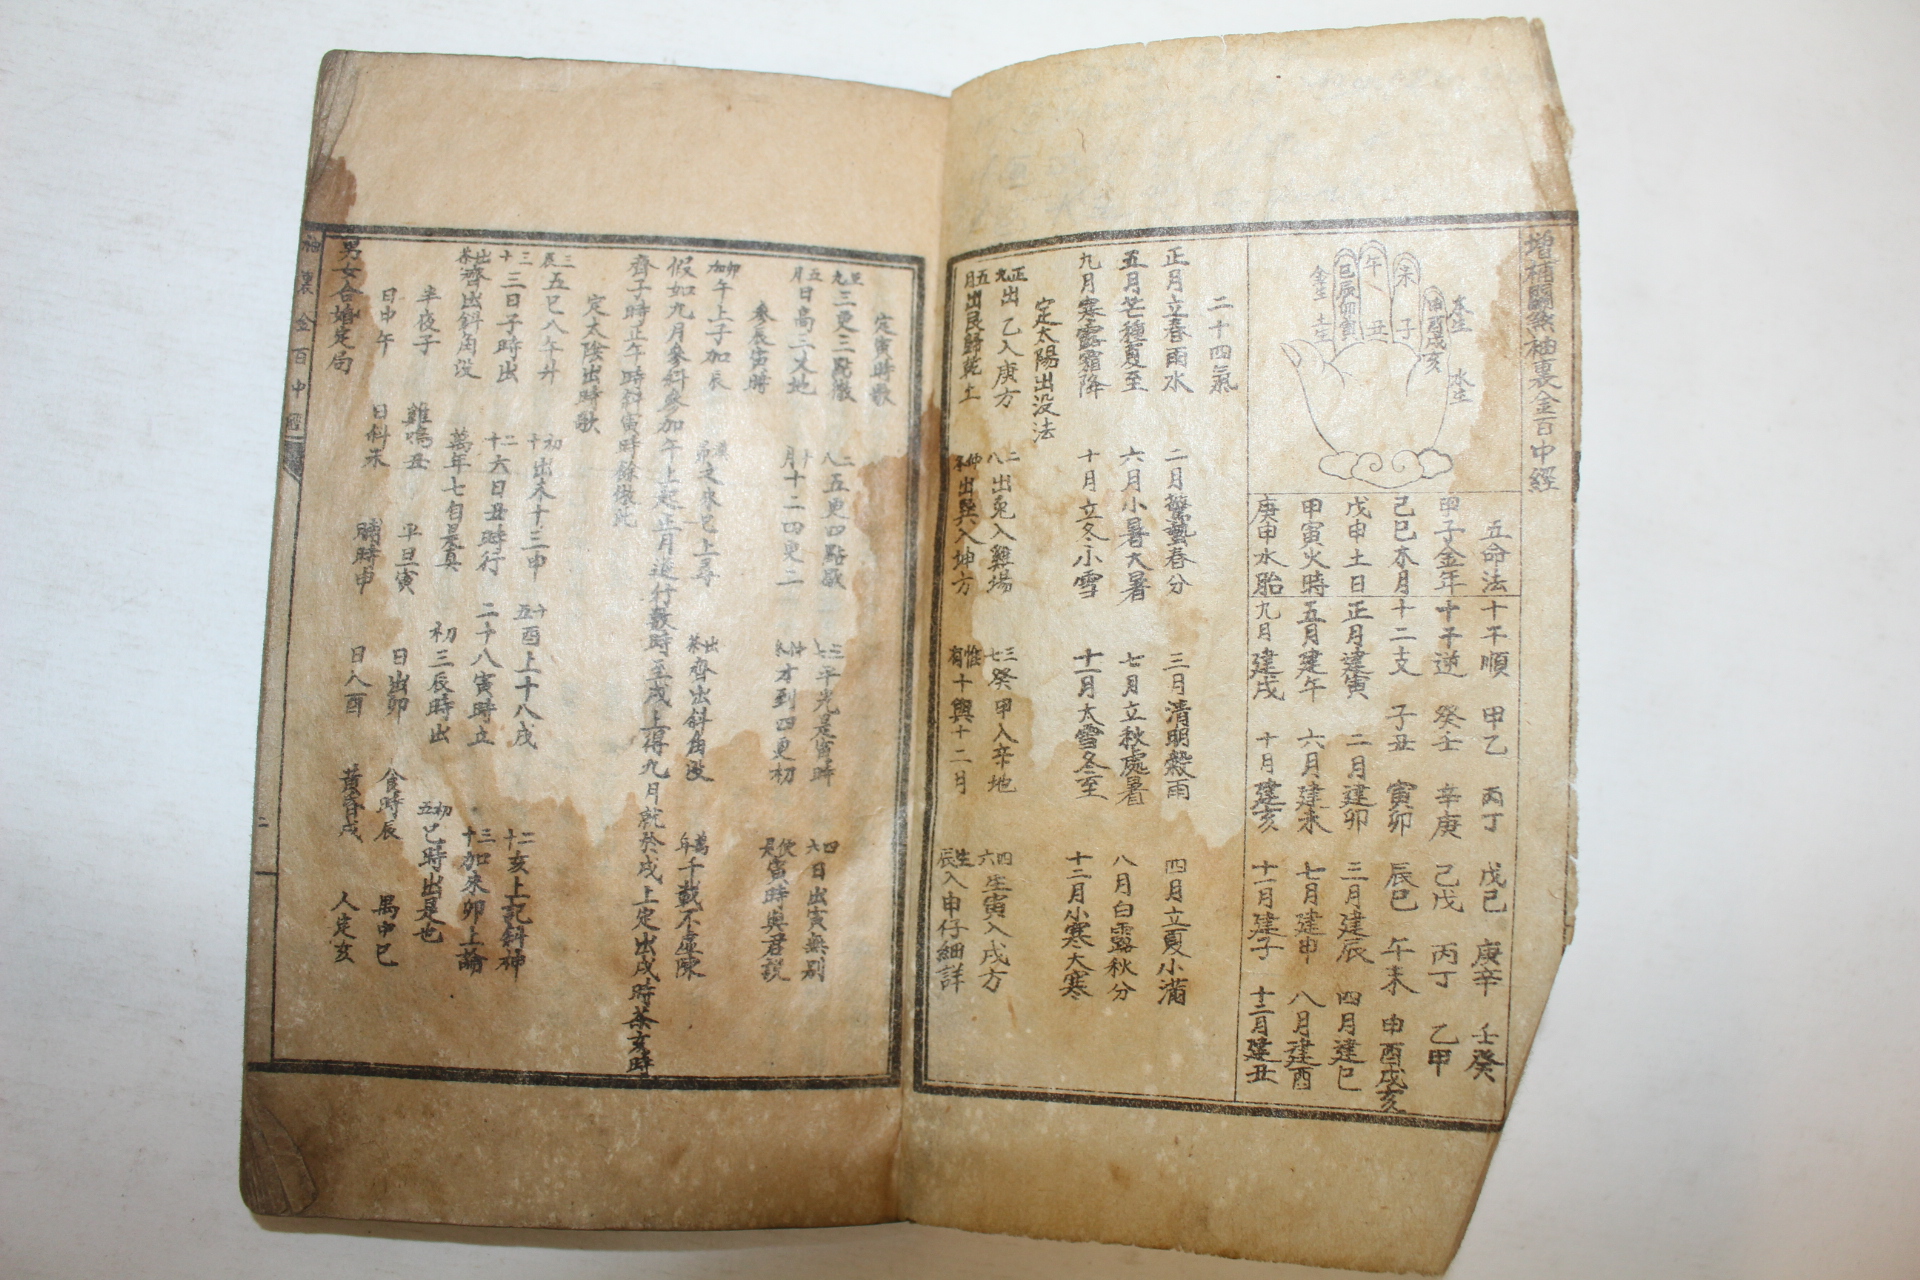 增補關煞袖裏金百中經
午
未
巳辰卯寅
丑
子
申酉戌亥
金生
土生
水生
木生
五命法
甲子金年
己巳木月
戊申土日
甲寅火時
庚申水胎
十干順 甲乙 丙丁 戊己 庚辛 壬癸
十干逆 癸壬 辛庚 己戊 丙丁 乙甲
十二支 子丑 寅卯 辰巳 午未 申酉戌亥
正月建寅 二月建卯 三月建辰 四月建巳
五月建午 六月建未 七月建申 八月建酉
九月建戌 十月建亥 十一月建子 十二月建丑
二十四氣
正月立春雨水 二月驚蟄春分 三月清明穀雨 四月立夏小滿
五月芒種夏至 六月小暑大暑 七月立秋處暑 八月白露秋分
九月寒露霜降 十月立冬小雪 十一月大雪冬至 十二月小寒大寒
定太陽出没法
正九出乙入庚方 二八出兎入雞場 三七癸甲入辛地 四六生寅入戌方
五月出艮歸乾土 仲冬出巽入坤方 惟有十與十二月 出辰入申仔細詳
定寅時歌
正九五更三點徹 二八五更四點歇 三七平光是寅時 四六日出寅無別
五月日高三丈地 十月十二四更二 仲冬才到四更初 便是寅時與君説
參辰寅時
加午上子加辰 之來已上尋 茶齊出斜角没 萬年千載不虛陳
假如九月參斜參加午上起正月逆行數時至戌上得九月就於戌上定出戌時茶亥時
齊子時正午時斜寅時餘倣此
定太陰出時歌
三辰五巳八午升 初十出未十三申 十五酉上十八戌 二十亥上記斜神
三十三日子時出 二十六日丑時行 二十八寅時立 三十加來卯上論
茶齊出斜角没 萬年七旬是真 初三辰時出 初五巳時出是也
半夜子 雞鳴丑 平旦寅 日出卯 食時辰 禺中巳
日中午 日斜未 晡時申 日入酉 黃昏戌 人定亥
男女合婚定局
袖裏金百中經
二